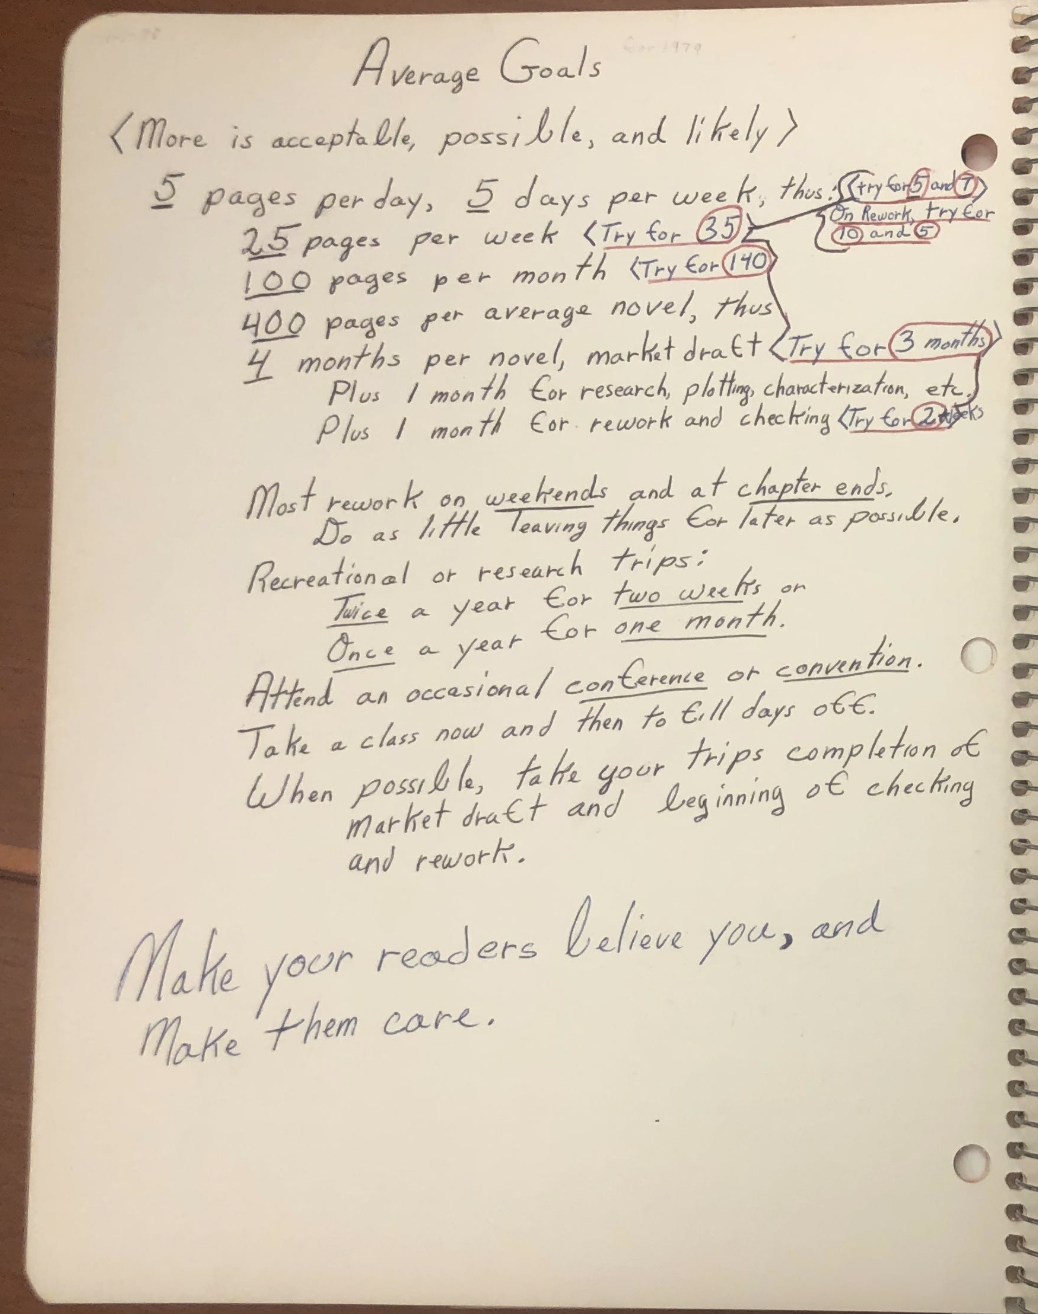 Average Goals
<More is acceptable, possible, and likely>
5 pages per day, 5 days per week, thus: <try for 5 and 7>
On Rework, try for
10 and 5
25 pages per week <Try for 35>
100 pages per month <Try for 140>
400 pages per average novel, thus
4 months per novel, market draft <Try for 3 months>
Plus 1 month for research, plotting, characterization, etc.
Plus 1 month for rework and checking <Try for 2 weeks
Most rework on weekends and at chapter ends.
Do as little leaving things for later as possible.
Recreational or research trips:
Twice a year for two weeks or
Once a year for one month.
Attend an occasional conference or convention.
Take a class now and then to fill days off.
When possible, take your trips completion of
market draft and beginning of checking
and rework.
Make your readers believe you, and
Make them care.